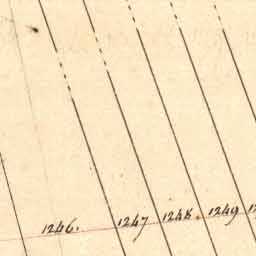 1246. 1247 1248. 1249